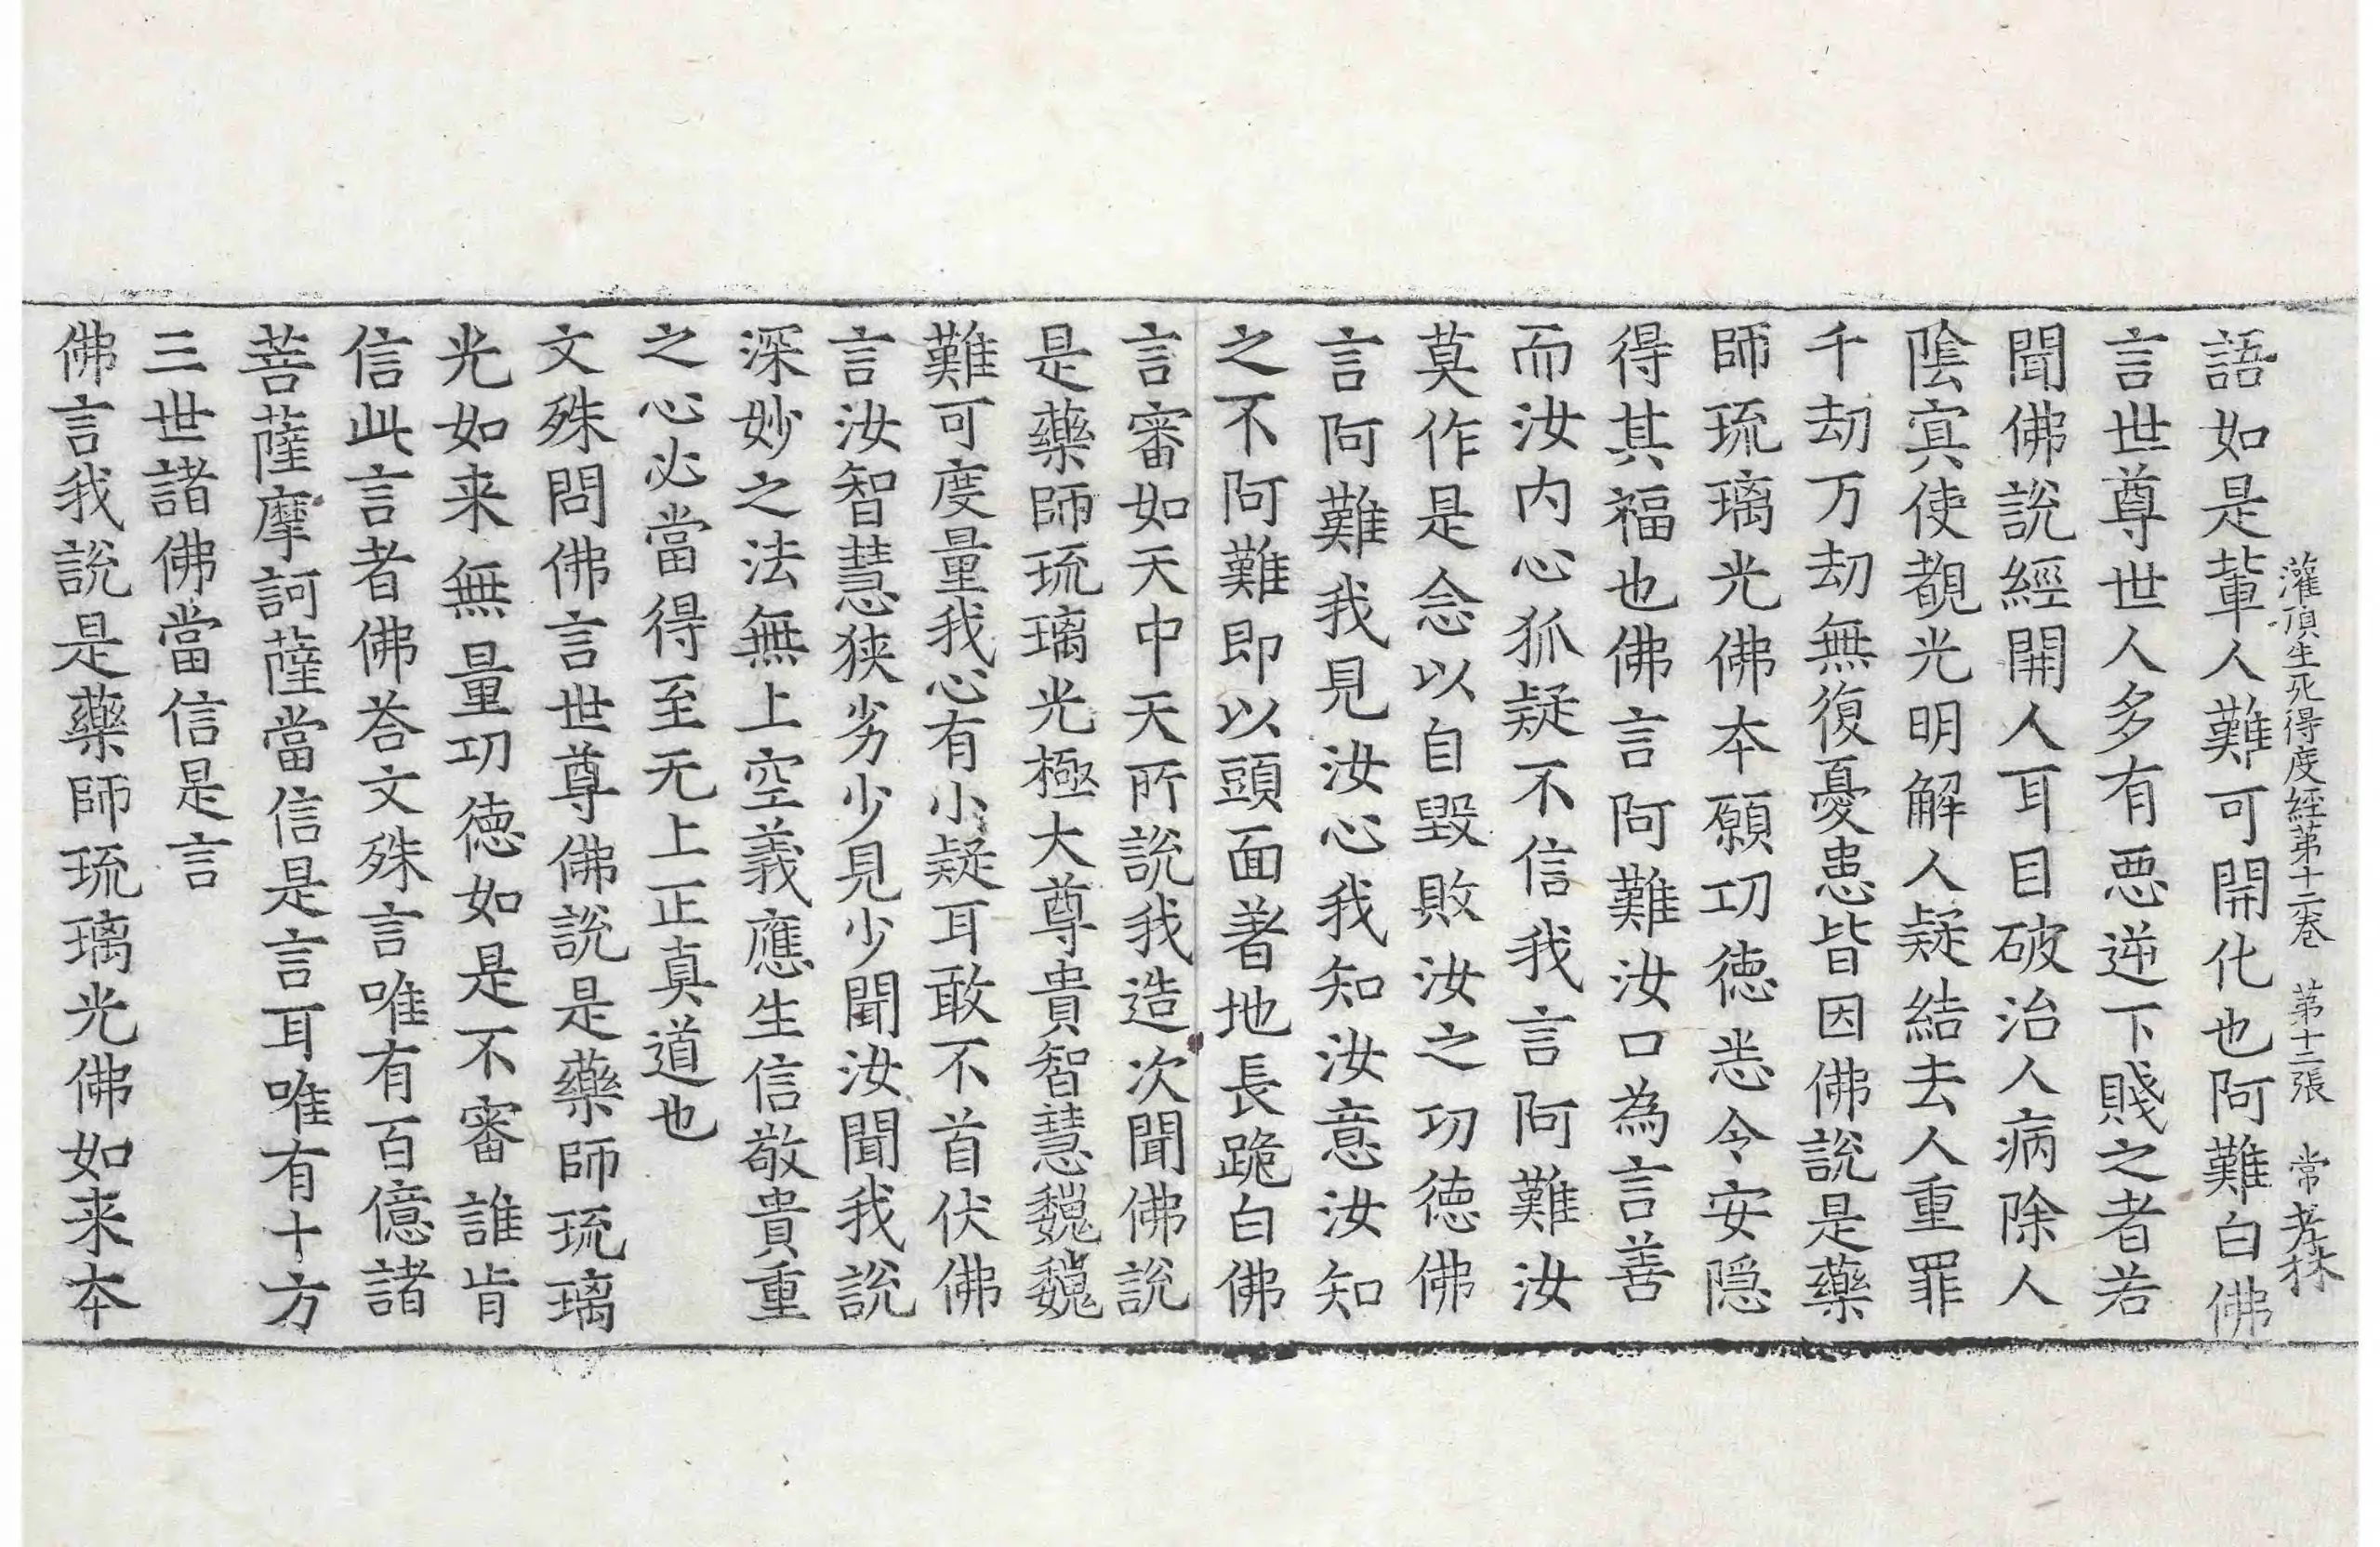 灌頂生死得度經苐十二卷　苐十二張　常
語如是軰人難可開化也阿難白佛
言世尊世人多有惡逆下賤之者若
聞佛說經開人耳目破治人病除人
隂㝠使覩光明解人疑結去人重罪
千劫万劫無復憂患皆因佛說是藥
師琉璃光佛夲願㓛德悉令安隠
得其福也佛言阿難汝口為言善
而汝内心狐疑不信我言阿難汝
莫作是念以自毀敗汝之㓛德佛
言阿難我見汝心我知汝意汝知
之不阿難即以頭面著地長跪白佛
言審如天中天所說我造次聞佛說
是藥師琉璃光極大尊貴智慧巍巍
難可度量我心有小疑耳敢不首伏佛
言汝智慧狹劣少見少聞汝聞我說
深妙之法無上空義應生信敬貴重
之心必當得至无上正真道也
文殊問佛言世尊佛說是藥師琉璃
光如来無量㓛德如是不審誰肯
信此言者佛荅文殊言唯有百億諸
菩薩摩訶薩當信是言耳唯有十方
三世諸佛當信是言
佛言我說是藥師琉璃光佛如来夲